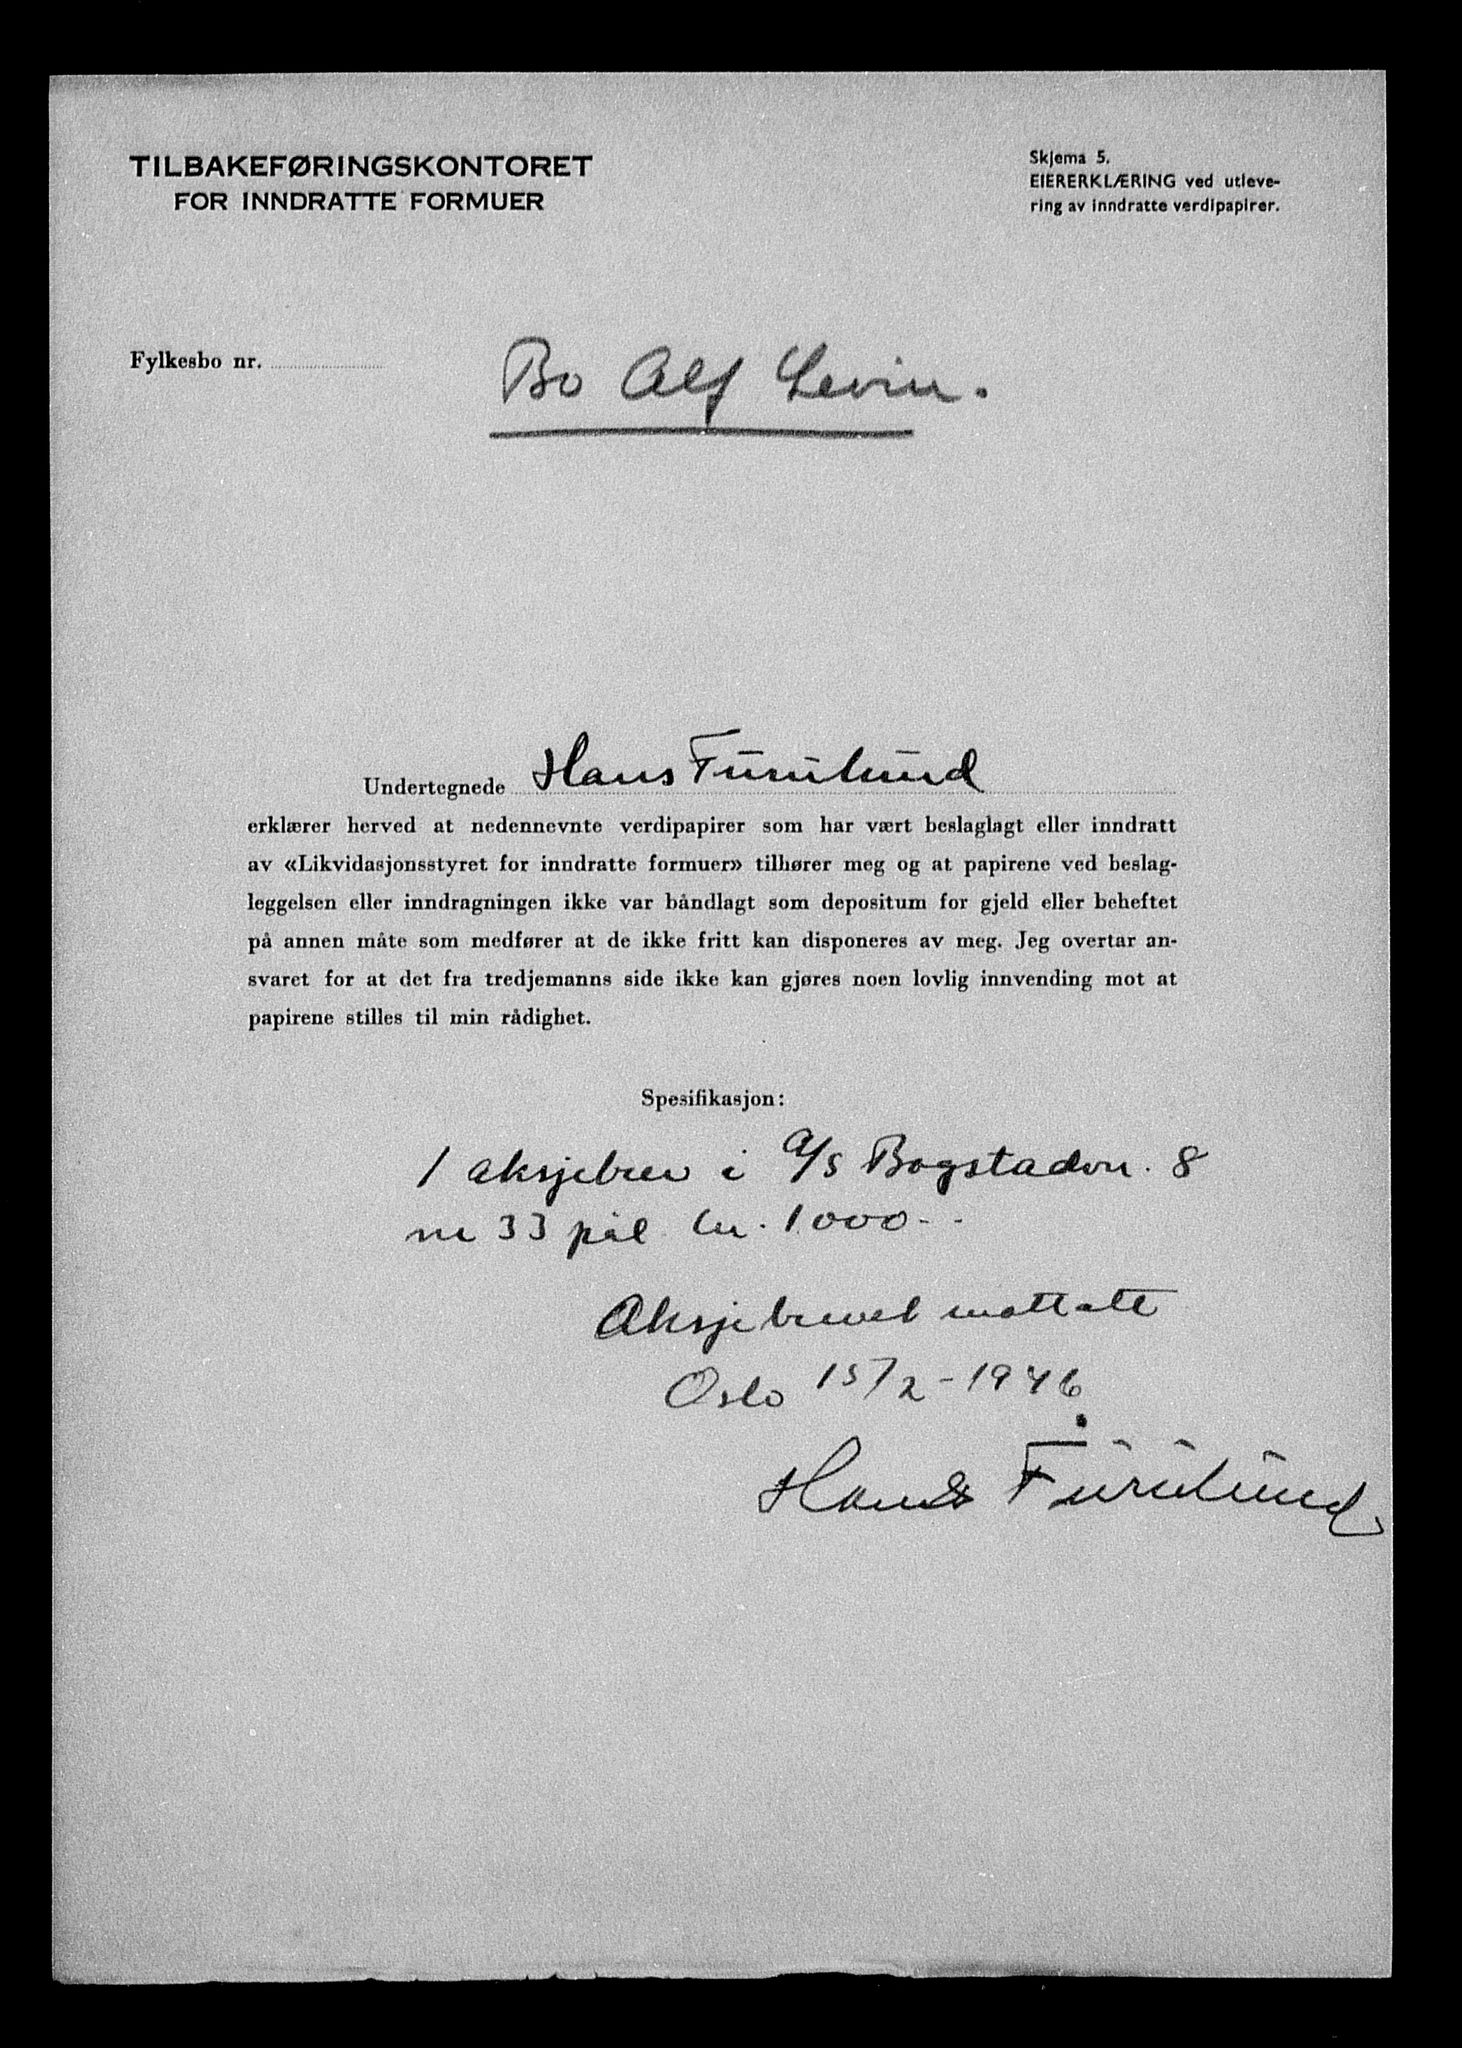 TILBAKEFØRINGSKONTORET
FOR INNDRATTE FORMUER
Skjema 5.
EIERERKLÆRING ved utleve-
ring av inndratte verdipapirer.
Fylkesbo nr.
Bo Alf Levin.
Undertegnede Hans Furulund
erklærer herved at nedennevnte verdipapirer som har vært beslaglagt eller inndratt
av «Likvidasjonsstyret for inndratte formuer» tilhører meg og at papirene ved beslag-
leggelsen eller inndragningen ikke var båndlagt som depositum for gjeld eller beheftet
på annen måte som medfører at de ikke fritt kan disponeres av meg. Jeg overtar an-
svaret for at det fra tredjemanns side ikke kan gjøres noen lovlig innvending mot at
papirene stilles til min rådighet.
Spesifikasjon:
1 aksjebrev i A/S Bogstadvn. 8
nr 33 pål. kr. 1000--
Aksjebrevet mottatt
Oslo 15/2-1946
Hans Furulund